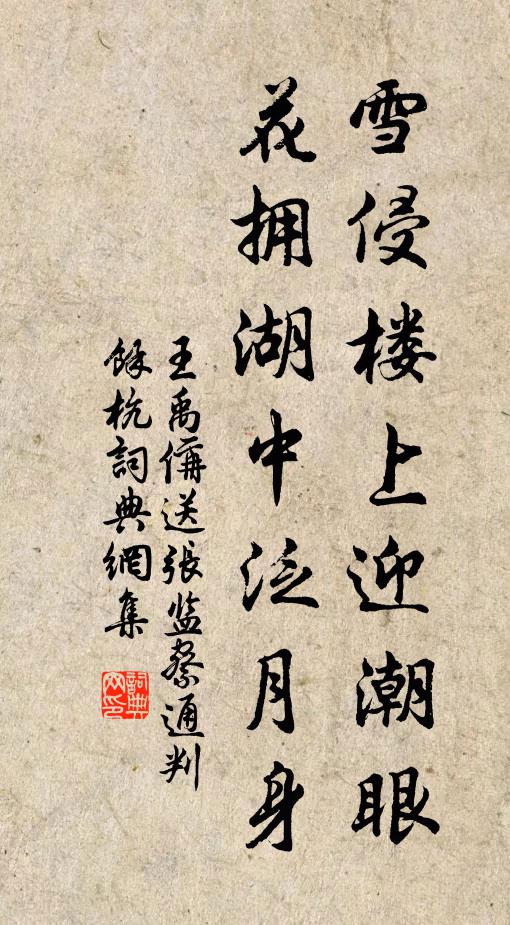 雪侵楼上迎潮眼
花拥湖中泛月身
王禹偁送張监察通判
餘杭詞典網集
詞典网印